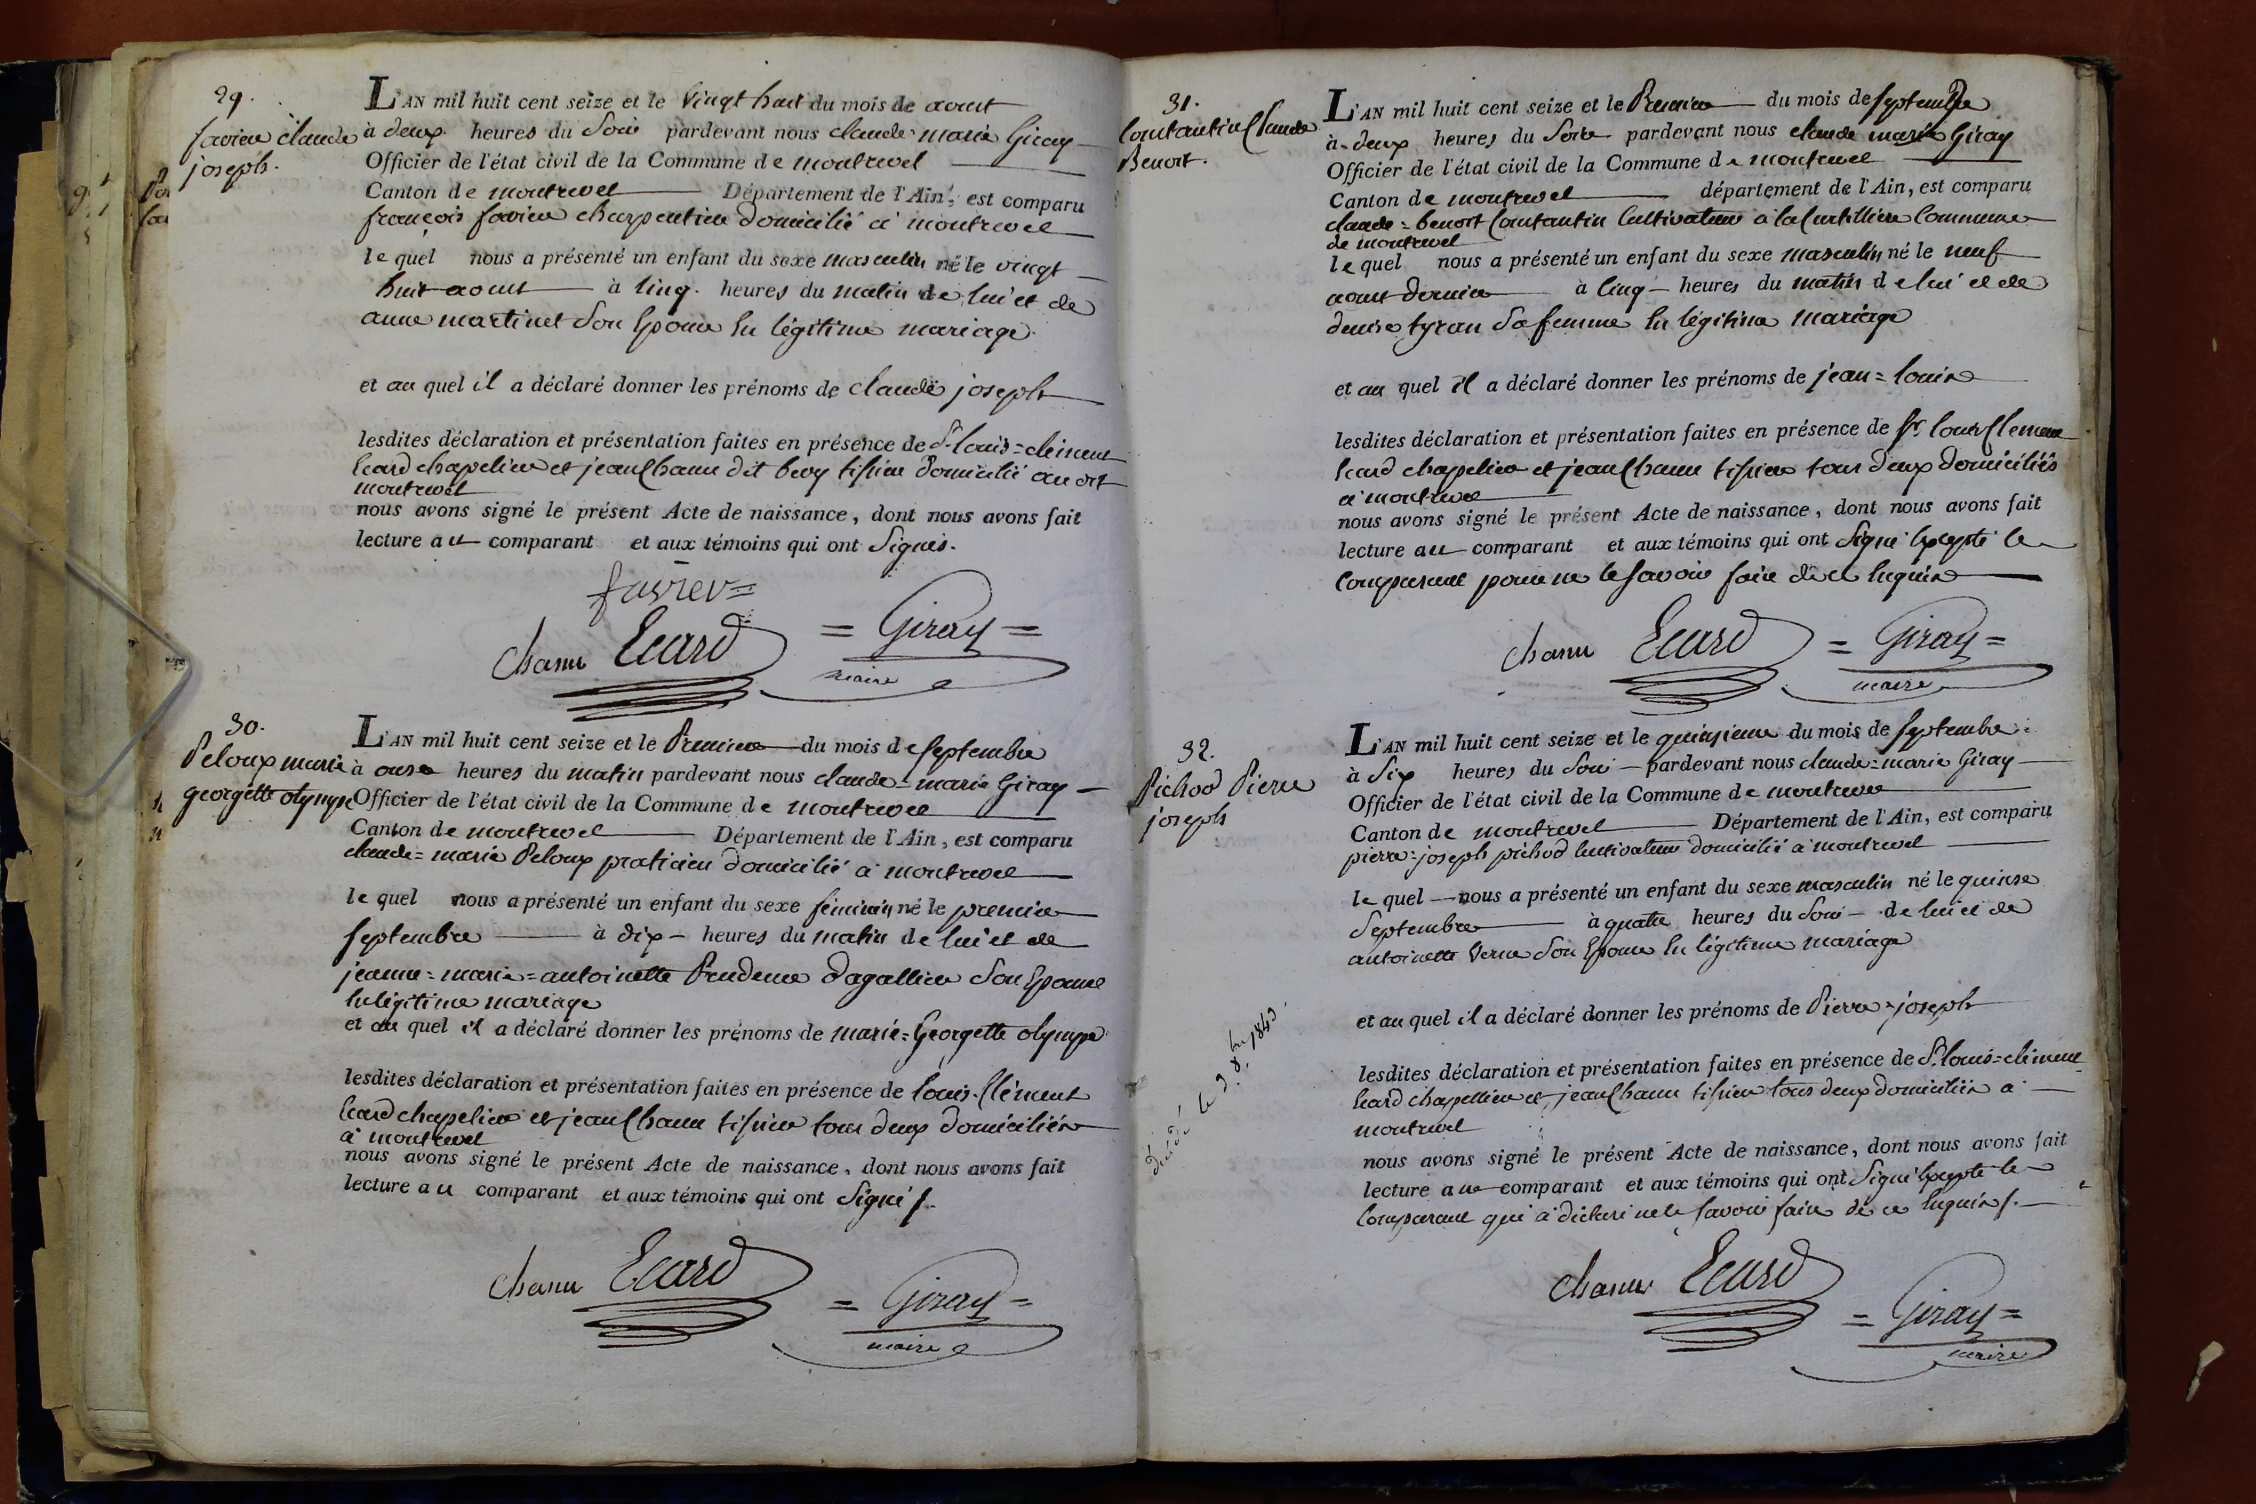 29.
favier claude
joseph.
L'AN mil huit cent seize et le vingt huit du mois de aout
à deux heures du Soir pardevant nous claude marie Giray
Officier de l'état civil de la Commune de montrevel
Canton de montrevel Département de l'Ain, est comparu
françois favier charpentier domicilié à montrevel
le quel nous a présenté un enfant du sexe masculin né le vingt
huit aout à cinq heures du matin de lui et de
anne martinet son Epouse En légitime mariage
et au quel il a déclaré donner les prénoms de claude joseph
lesdites déclaration et présentation faites en présence de Sr. louis=clément
Ecard chapelier et jean Chanu dit bevy tissier domicilié au dit
montrevel
nous avons signé le présent Acte de naissance, dont nous avons fait
lecture au comparant et aux témoins qui ont Signés.
favier=
chanu Ecard = Giray =
maire
30.
Peloux marie
georgette olympe
L'AN mil huit cent seize et le Premier du mois de septembre
à onze heures du matin pardevant nous claude=marie Giray
Officier de l'état civil de la Commune de montrevel
Canton de montrevel Département de l'Ain, est comparu
claude=marie Peloux praticien domicilié à montrevel
le quel nous a présenté un enfant du sexe féminin né le premier
septembre à dix heures du matin de lui et de
jeanne=marie=antoinette Prudence dagallier Son Epouse
En légitime mariage
et au quel il a déclaré donner les prénoms de marie=Georgette olympe
lesdites déclaration et présentation faites en présence de louis Clément
Ecard chapelier et jean Chanu tissier tous deux domiciliés
à montrevel
nous avons signé le présent Acte de naissance, dont nous avons fait
lecture au comparant et aux témoins qui ont Signé /.
chanu Ecard = Giray =
maire
31.
Contantin Claude
Benoit.
L'AN mil huit cent seize et le Premier du mois de septembre
à deux heures du Soir pardevant nous claude marie Giray
Officier de l'état civil de la Commune de montrevel
Canton de montrevel département de l'Ain, est comparu
claude=benoit Contantin Cultivateur à la Curtillière Commune
de montrevel
le quel nous a présenté un enfant du sexe masculin né le neuf
aout dernier à cinq heures du matin de lui et de
denise tyran Sa femme En légitime mariage
et au quel il a déclaré donner les prénoms de jean=louis
lesdites déclaration et présentation faites en présence de Sr. louis Clément
Ecard chapelier et jean Chanu tissier tous deux domiciliés
à montrevel
nous avons signé le présent Acte de naissance, dont nous avons fait
lecture au comparant et aux témoins qui ont Signé Excepté le
comparant pour ne le savoir faire de ce Enquis
chanu Ecard = Giray =
maire
32.
Pichod Pierre
joseph
décédé le 9 8bre 1843.
L'AN mil huit cent seize et le quinzieme du mois de septembre
à Six heures du Soir pardevant nous claude=marie Giray
Officier de l'état civil de la Commune de montrevel
Canton de montrevel Département de l'Ain, est comparu
pierre=joseph pichod Cultivateur domicilié à montrevel
le quel nous a présenté un enfant du sexe masculin né le quinze
Septembre à quatre heures du Soir de lui et de
antoinette Verne Son Epouse En légitime mariage
et au quel il a déclaré donner les prénoms de Pierre=joseph
lesdites déclaration et présentation faites en présence de Sr. louis=clément
Ecard chapellier et jean Chanu tissier tous deux domiciliés à
montrevel
nous avons signé le présent Acte de naissance, dont nous avons fait
lecture au comparant et aux témoins qui ont Signé Excepté le
Comparant qui a déclaré ne le savoir faire de ce Enquis /.
chanu Ecard = Giray =
maire